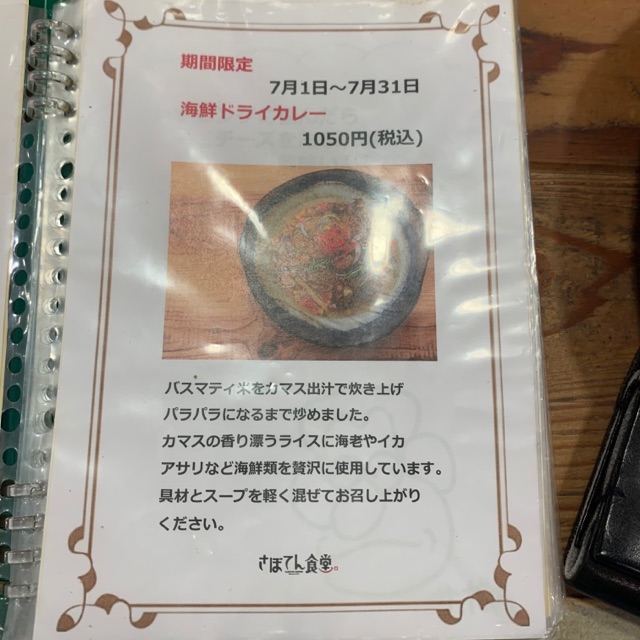 期間限定
7月1日～7月31日
海鮮ドライカレー
1050円(税込)
バスマティ米をカマス出汁で炊き上げ
パラパラになるまで炒めました。
カマスの香り漂うライスに海老やイカ
アサリなど海鮮類を贅沢に使用しています。
具材とスープを軽く混ぜてお召し上がり
ください。
さぼてん食堂